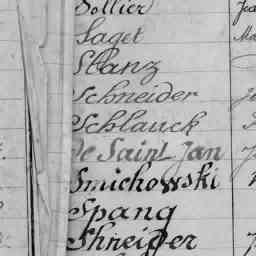 Sollier
Saget
Stanz
Schneider
Schlauck
de Saint Jan
Smichowski
Spang
Shneider